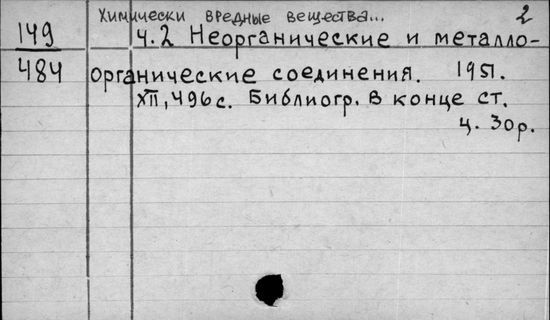 Химически вредные вещества... 2
149 ч.2 Неорганические и металло-
484 органические соединения. 1951.
XII, 496 с. Библиогр. в конце ст.
ц. 30 р.